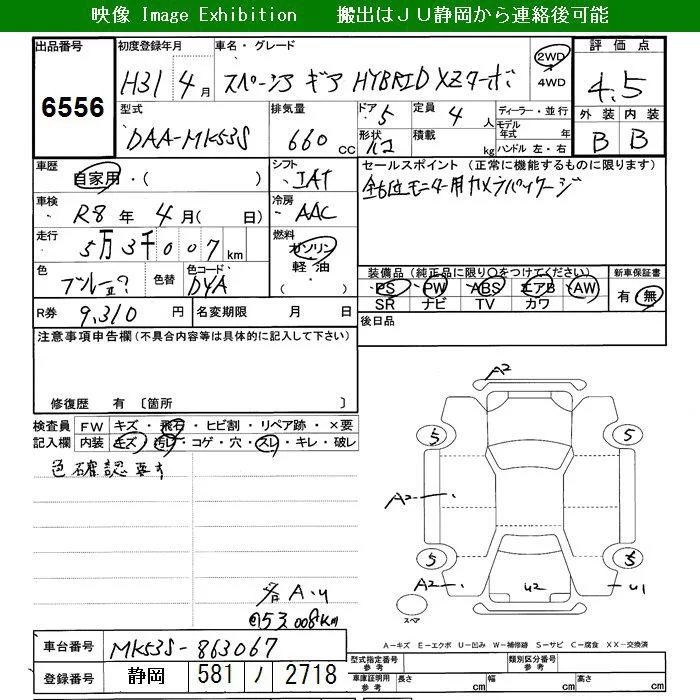 映像 Image Exhibition 搬出はＪＵ静岡から連絡後可能
出品番号 初度登録年月 車名・グレード 評価点
6556 H31年 4月 スペーシア ギア HYBRID XZターボ 2WD 4WD 4.5
型式 排気量 ドア 5 定員 4人 ディーラー・並行 外装 内装
DAA-MK53S 660 cc 形状 積載 kg モデル年式 年 ハンドル 左・右 B B
車歴 自家用・( ) シフト IAT セールスポイント (正常に機能するものに限ります)
車検 R8年 4月( 日) 冷房 AAC 全方位モニター用カメラパッケージ
走行 5万3千007km 燃料 ガソリン 軽油 ( )
色 色替 色コード DYA 装備品(純正品に限り○をつけてください) 新車保証書
PS PW ABS エアB AW 有・無
SR ナビ TV カワ
R券 9,310円 名変期限 月 日 後日品
注意事項申告欄(不具合内容等は具体的に記入して下さい)
修復歴 有 〔箇所 〕
検査員 FW キズ・飛石・ヒビ割・リペア跡・×要
記入欄 内装 キズ・汚れ・コゲ・穴・スレ・キレ・破レ
色確認要す
A2
5 5
A2
5 5
A2 U2 U1
スペア
各A.U
53,008km
A－キズ E－エクボ U－凹み W－補修跡 S－サビ C－腐食 XX－交換済
車台番号 MK53S-863067
型式指定番号 参考 類別区分番号 参考
登録番号 静岡 581 ノ 2718 車庫証明用 参考 長さ cm 幅 cm 高さ cm